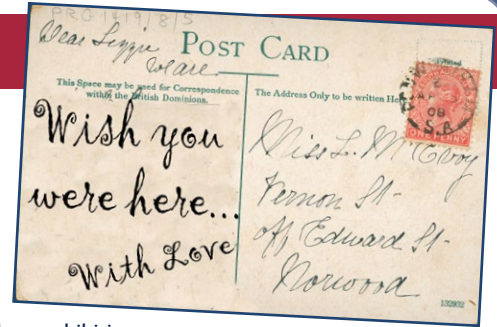 PRG 1619/8/5
Dear Lizzie
POST CARD
we are
This Space may be used for Correspondence
within the British Dominions.
The Address Only to be written Here
ONE PENNY
S.A
08
Wish you
were here...
With Love
Miss L. McEvoy
Vernon St-
off Edward St-
Norwood
132902